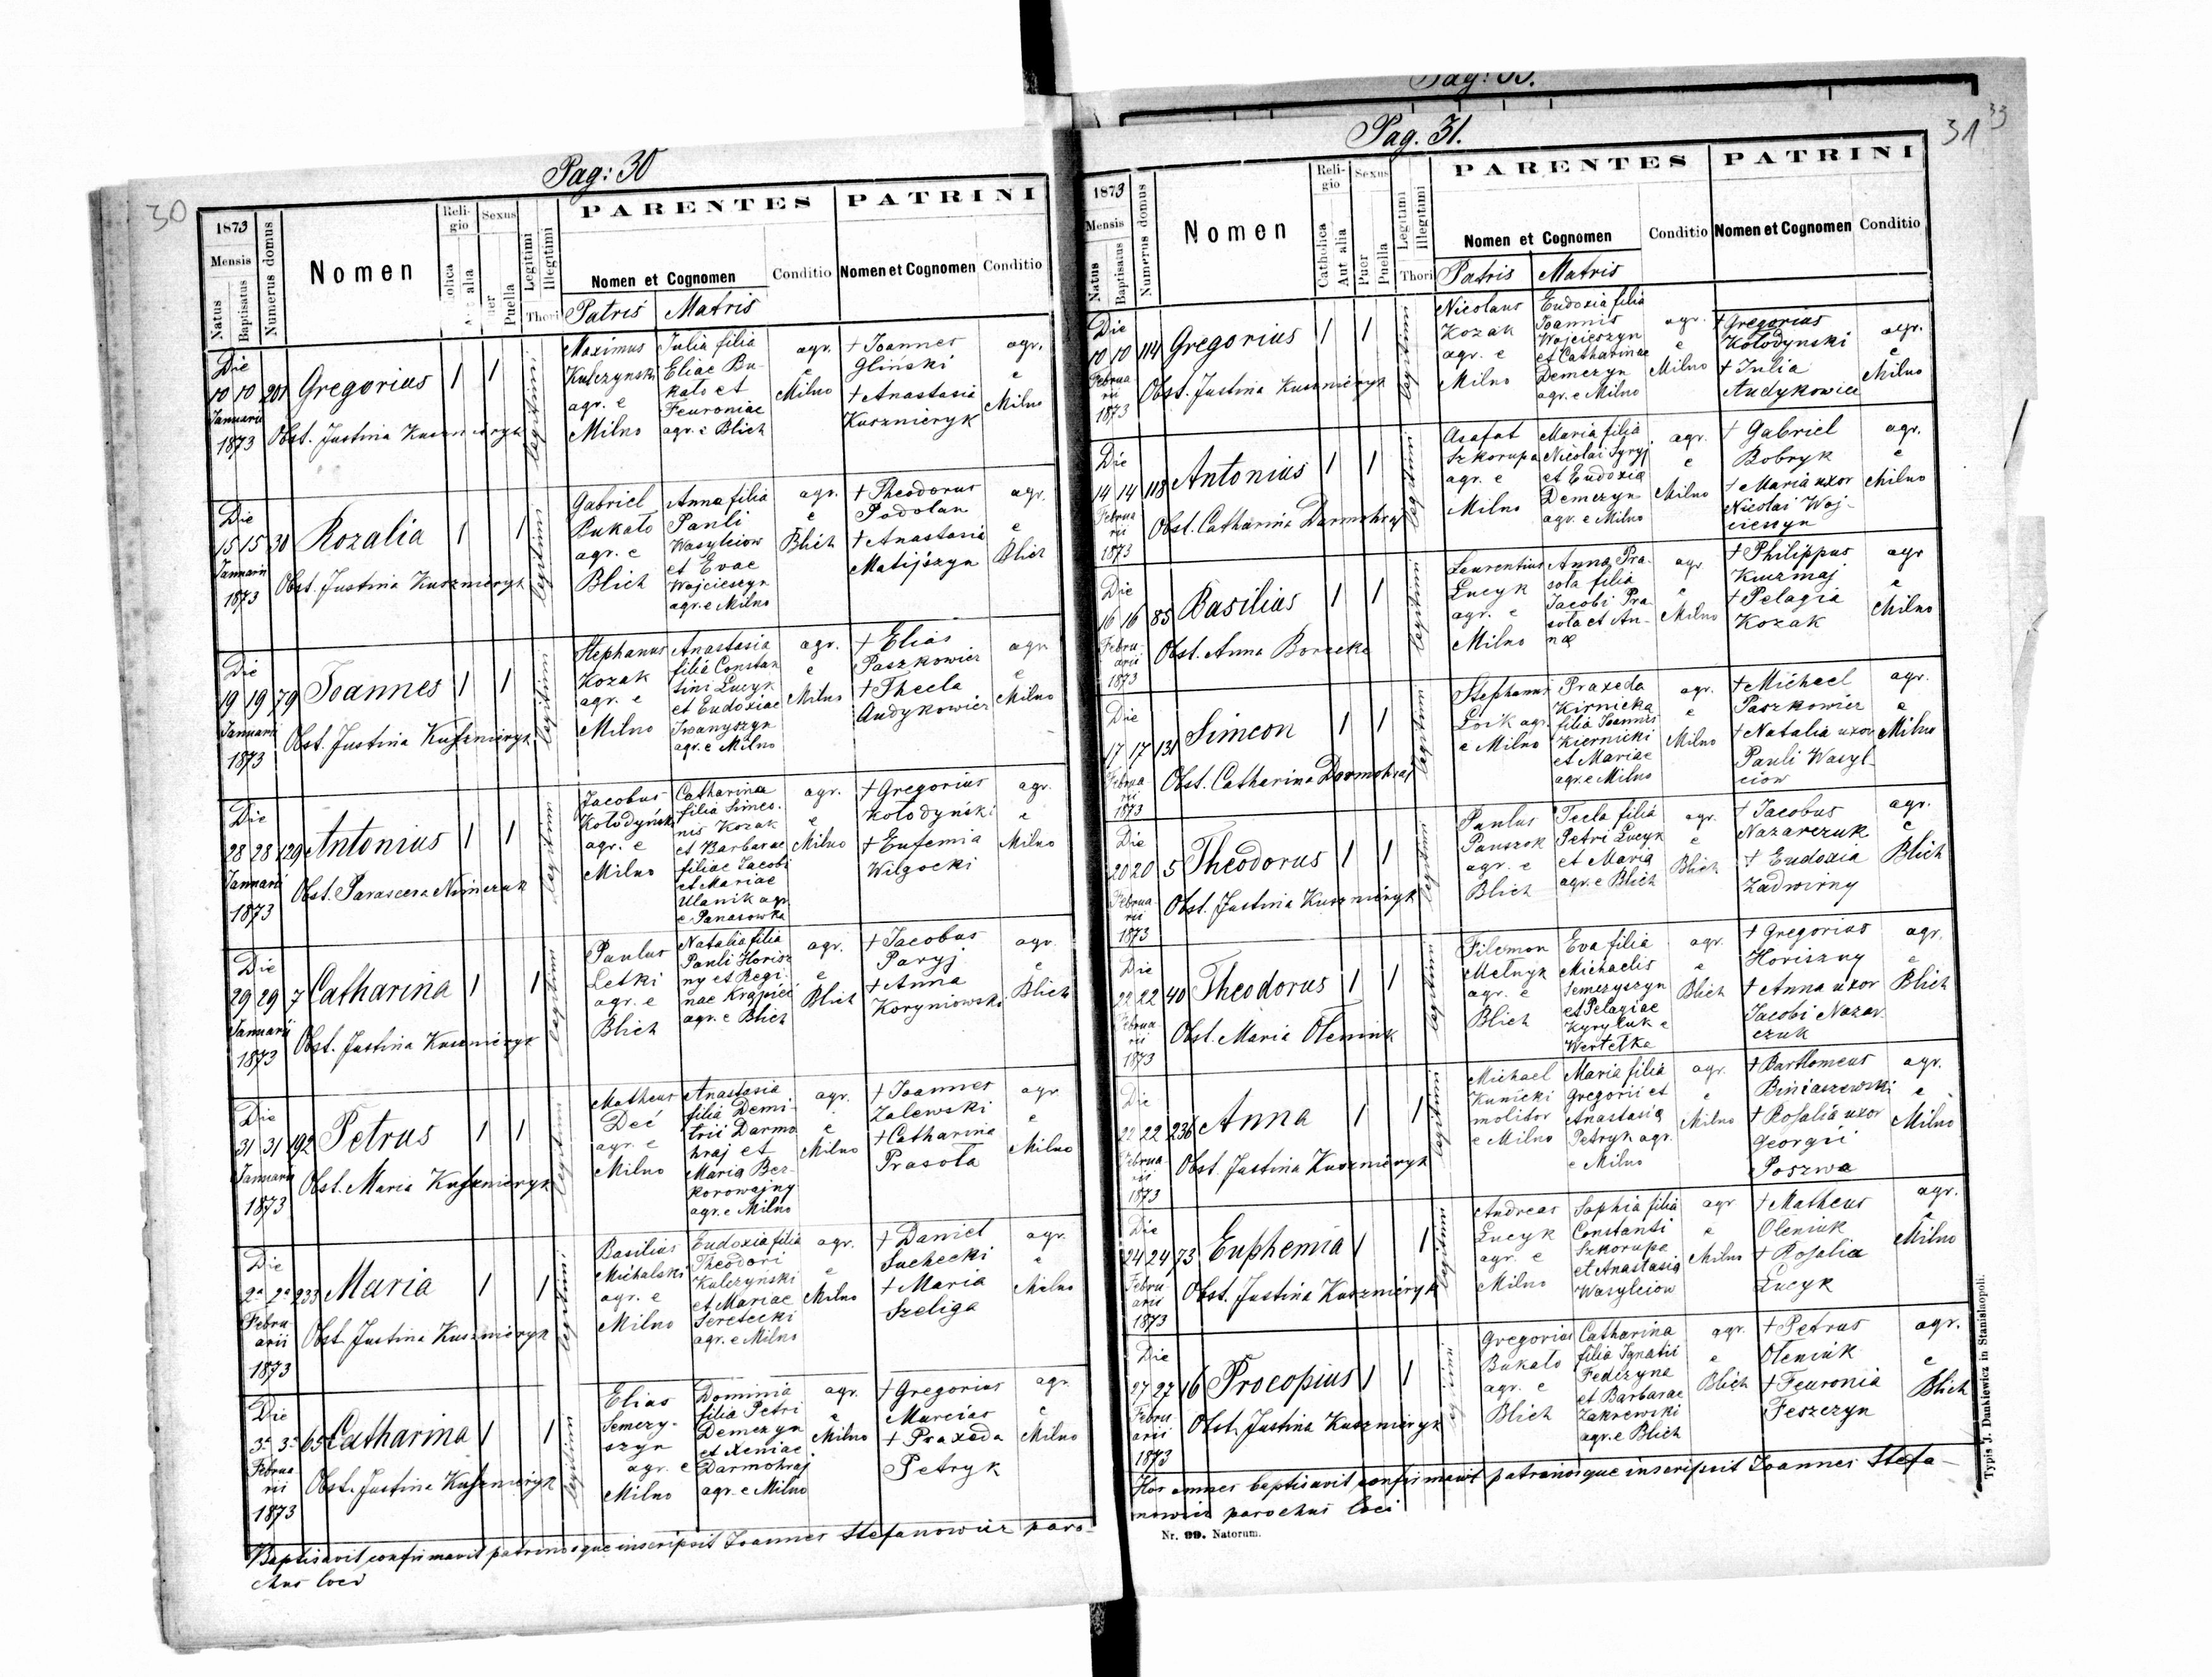 30
Pag: 30
1873
Mensis
Natus
Baptisatus
Numerus domus
Nomen
Religio
Sexus
Puella
Legitimi
Illegitimi
Thori
PARENTES
Nomen et Cognomen
Conditio
Patris
Matris
PATRINI
Nomen et Cognomen
Conditio
Die
10 10 201 Gregorius 1 1 legitimi
Januarii
1873
Obst. Justina Kuszmeryk
Maximus
Kulczynski
agr. e
Milno
Julia filia
Eliae Bu-
kato et
Feuroniae
agr. e Blich
agr.
e
Milno
† Joannes
Gliński
† Anastasia
Kuszmieryk
agr.
e
Milno
Die
15 15 30 Rozalia 1 1 legitimi
Januarii
1873
Obst. Justina Kuszmeryk
Gabriel
Bukato
agr. e
Blich
Anna filia
Pauli
Wasylciow
et Evae
Wojcieszyn
agr. e Milno
agr.
e
Blich
† Theodorus
Podolan
† Anastasia
Matijszyn
agr.
e
Blich
Die
19 19 79 Joannes 1 1 legitimi
Januarii
1873
Obst. Justina Kuszmieryk
Stephanus
Kozak
agr. e
Milno
Anastasia
filia Constan
tini Lucyk
et Eudoxiae
Iwanyszyn
agr. e Milno
agr.
e
Milno
† Elias
Paszkowicz
† Thecla
Andykowicz
agr.
e
Milno
Die
28 28 129 Antonius 1 1 legitimi
Januarii
1873
Obst. Parascera Nimczuk
Jacobus
Kołodyński
agr. e
Milno
Catharina
filia Simeo-
nis Kozak
et Barbarae
filiae Jacobi
et Mariae
Ulanik agr.
e Panasowka
agr.
e
Milno
† Gregorius
Kołodyński
† Eufemia
Wilgocki
agr.
e
Milno
Die
29 29 7 Catharina 1 1 legitimi
Januarii
1873
Obst. Justina Kuszmieryk
Paulus
Letki
agr. e
Blich
Natalia filia
Pauli Horisz
ny et Regi-
nae Krąpiec
agr. e Blich
agr.
e
Blich
† Jacobus
Paryj
† Anna
Koryniowski
agr.
e
Blich
Die
31 31 192 Petrus 1 1 legitimi
Januarii
1873
Obst. Maria Kuszmieryk
Matheus
Deć
agr. e
Milno
Anastasia
filia Demi-
trii Darmo
hraj et
Maria Bez-
korowajny
agr. e Milno
agr.
e
Milno
† Joannes
Zalewski
† Catharina
Prasota
agr.
e
Milno
Die
2a 2a 233 Maria 1 1 legitimi
Febru
arii
1873
Obst. Justina Kuszmieryk
Basilius
Michalski
agr. e
Milno
Eudoxia filia
Theodori
Kulczyński
et Mariae
Seretecki
agr. e Milno
agr.
e
Milno
† Daniel
Suchecki
† Maria
Szeliga
agr.
e
Milno
Die
3a 3a 65 Catharina 1 1 legitimi
Februa
rii
1873
Obst. Justina Kuszmieryk
Elias
Semczy-
szyn
agr. e
Milno
Dominia
filia Petri
Demczyn
et Xeniae
Darmohraj
agr. e Milno
agr.
e
Milno
† Gregorius
Marcias
† Praxeda
Petryk
agr.
e
Milno
Baptisavit, confirmavit patrinosque inscripsit Joannes Stefanowicz paro-
chus loci
Pag. 31.
31
33
1873
Mensis
Natus
Baptisatus
Numerus domus
Nomen
Religio
Catholica
Aut alia
Sexus
Puer
Puella
Legitimi
Illegitimi
Thori
PARENTES
Nomen et Cognomen
Conditio
Patris
Matris
PATRINI
Nomen et Cognomen
Conditio
Die
10 10 114 Gregorius 1 1 legitimi
Februa
rii
1873
Obst. Justina Kuszmieryk
Nicolaus
Kozak
agr. e
Milno
Eudoxia filia
Joannis
Wojcieszyn
et Catharinae
Demczyn
agr. e Milno
agr.
e
Milno
† Gregorius
Kołodynski
† Julia
Andykowicz
agr.
e
Milno
Die
14 14 118 Antonius 1 1 legitimi
Februa
rii
1873
Obst. Catharina Darmohraj
Asafat
Szkorupa
agr. e
Milno
Maria filia
Nicolai Syryj
et Eudoxia
Demczyn
agr. e Milno
agr.
e
Milno
† Gabriel
Bobryk
† Maria uxor
Nicolai Woj-
cieszyn
agr.
e
Milno
Die
16 16 85 Basilius 1 1 legitimi
Febru-
arii
1873
Obst. Anna Borecka
Laurentius
Lucyk
agr. e
Milno
Anna Pra-
sota filia
Jacobi Pra
sota et An-
nae
agr.
e
Milno
† Philippus
Kuzmaj
† Pelagia
Kozak
agr
e
Milno
Die
17 17 131 Simeon 1 1 legitimi
Februa
rii
1873
Obst. Catharina Darmohraj
Stephanus
Łoik agr.
e Milno
Praxeda
Kirnicka
filia Joannis
Kiernicki
et Mariae
agr. e Milno
agr.
e
Milno
† Michael
Paszkowicz
† Natalia uxor
Pauli Wasyl-
ciow
agr.
e
Milno
Die
20 20 5 Theodorus 1 1 legitimi
Februa
rii
1873
Obst. Justina Kuszmieryk
Paulus
Panszok
agr. e
Blich
Tecla filia
Petri Lucyk
et Maria
agr. e Blich
agr.
e
Blich
† Jacobus
Nazarczuk
† Eudoxia
Zadwirny
agr.
e
Blich
Die
22 22 40 Theodorus 1 1 legitimi
Februa
rii
1873
Obst. Maria Oleniuk
Filemon
Melnyk
agr. e
Blich
Eva filia
Michaelis
Semczyszyn
et Pelagiae
Kyryluk e
Wertelka
agr.
e
Blich
† Gregorius
Horiszny
† Anna uxor
Jacobi Nazar-
czuk
agr.
e
Blich
Die
22 22 236 Anna 1 1 legitimi
Februa
rii
1873
Obst. Justina Kuszmieryk
Michael
Kunicki
molitor
e Milno
Maria filia
Gregorii et
Anastasia
Petryk agr.
e Milno
agr.
e
Milno
† Bartlomeus
Biniaszewski
† Rosalia uxor
Georgii
Poszwa
agr.
e
Milno
Die
24 24 73 Euphemia 1 1 legitimi
Febru
arii
1873
Obst. Justina Kuszmieryk
Andreas
Lucyk
agr. e
Milno
Sophia filia
Constanti
Szkorupa
et Anastasia
Wasylciow
agr.
e
Milno
† Matheus
Oleniuk
† Rosalia
Lucyk
agr.
e
Milno
Die
27 27 16 Procopius 1 1
Febru
arii
1873
Obst. Justina Kuszmieryk
Gregorius
Bukato
agr. e
Blich
Catharina
filia Ignatii
Fedczyna
et Barbarae
Zakrewski
agr. e Blich
agr.
e
Blich
† Petrus
Oleniuk
† Feuronia
Feszczyn
agr.
e
Blich
Hos omnes baptisavit, confirmavit patrinosque inscripsit Joannes Stefa-
nowicz parochus loci
Nr. 99. Natorum.
Typis J. Dankiewicz in Stanislaopoli.